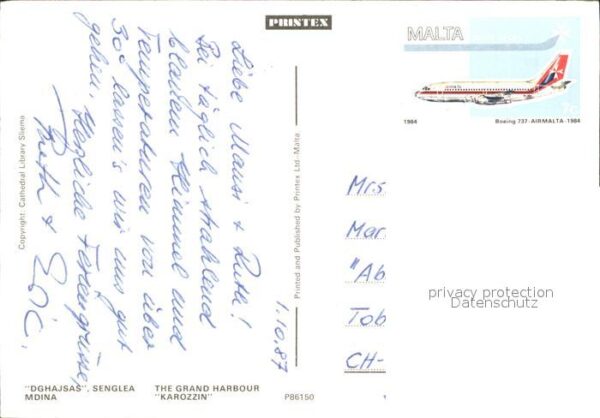 PRINTEX
MALTA
7c
1984
Boeing 737·AIRMALTA·1984
1.10.87
Liebe Mausi + Ruth!
Bei täglich strahlend
blauem Himmel und
Temperaturen von über
30° lassen's wir uns gut
gehen. Herzliche Feriengrüsse,
Ruth + Eric.
Copyright: Cathedral Library Sliema
Printed and Published by Printex Ltd-Malta
Mrs
Mar
"Ab
Tob
CH-
privacy protection
Datenschutz
"DGHAJSAS", SENGLEA
MDINA
THE GRAND HARBOUR
"KAROZZIN"
P86150